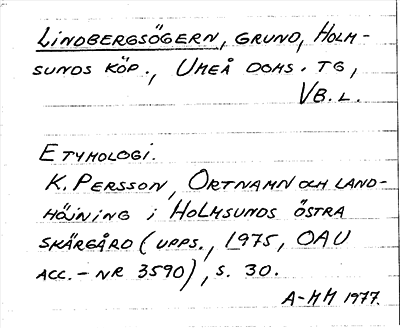 LINDBERGSÖGERN, GRUND, HOLM-
SUNDS KÖP., UMEÅ DOMS. TG,
VB.L.
ETYMOLOGI.
K. PERSSON, ORTNAMN OCH LAND-
HÖJNING i HOLMSUNDS ÖSTRA
SKÄRGÅRD (UPPS., 1975, OAU
ACC.-NR 3590), S. 30.
A-MM 1977.